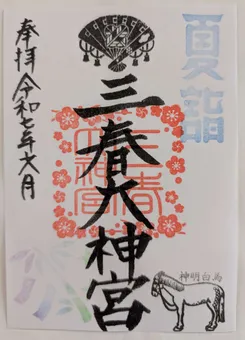 夏詣
三春大神宮
奉拝 令和七年六月
三春大神宮
神明白馬